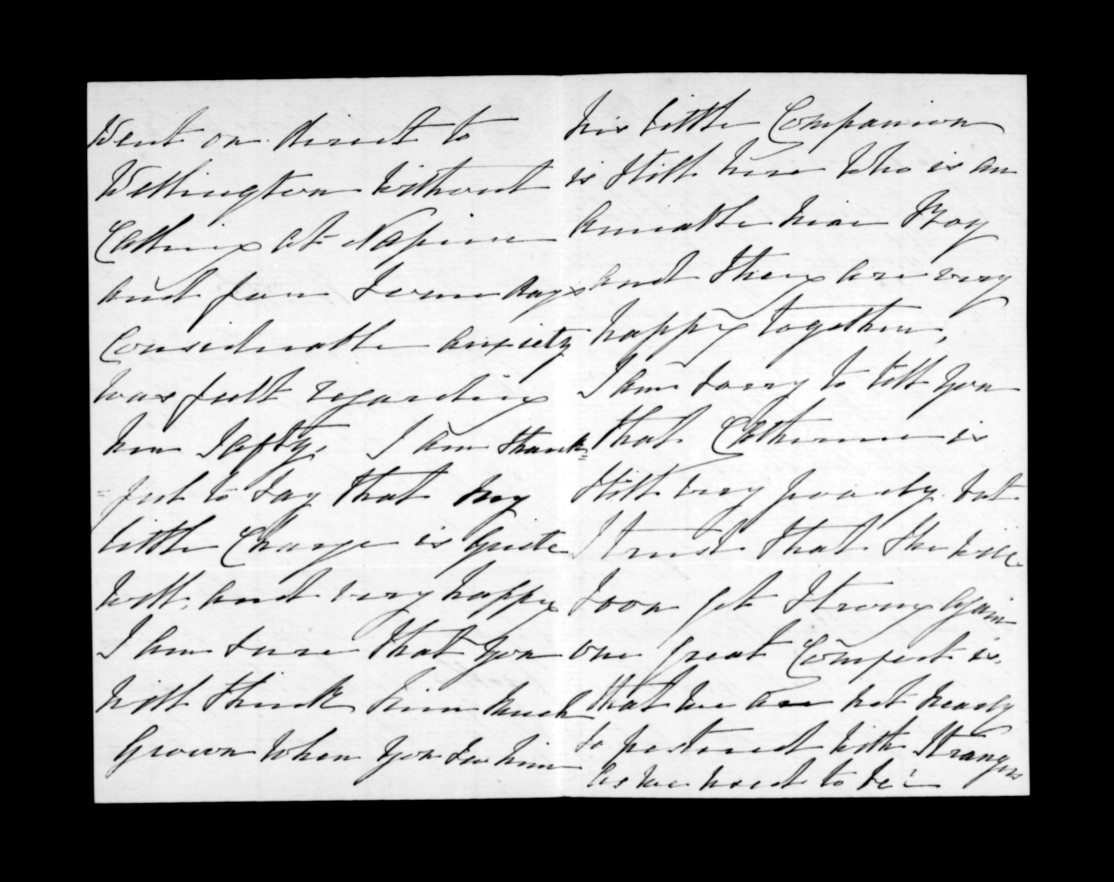 Went on direct to
Wellington without
Calling at Napier
and for some days
Considerable anxiety
was felt regarding
her Safty. I am thank=
=ful to say that my
little Charge is quite
well, and very happy
I am sure that you
will think him much
Grown when you see him
his little Companion
is still here who is an
amiable nice Boy
and they are very
happy together,
I am sorry to tell you
that Catherine is
still very poorly. but
I trust that she will
soon get strong again
one great Comfort is,
that we are not nearly
so pestered with Strangers
as we used to be!